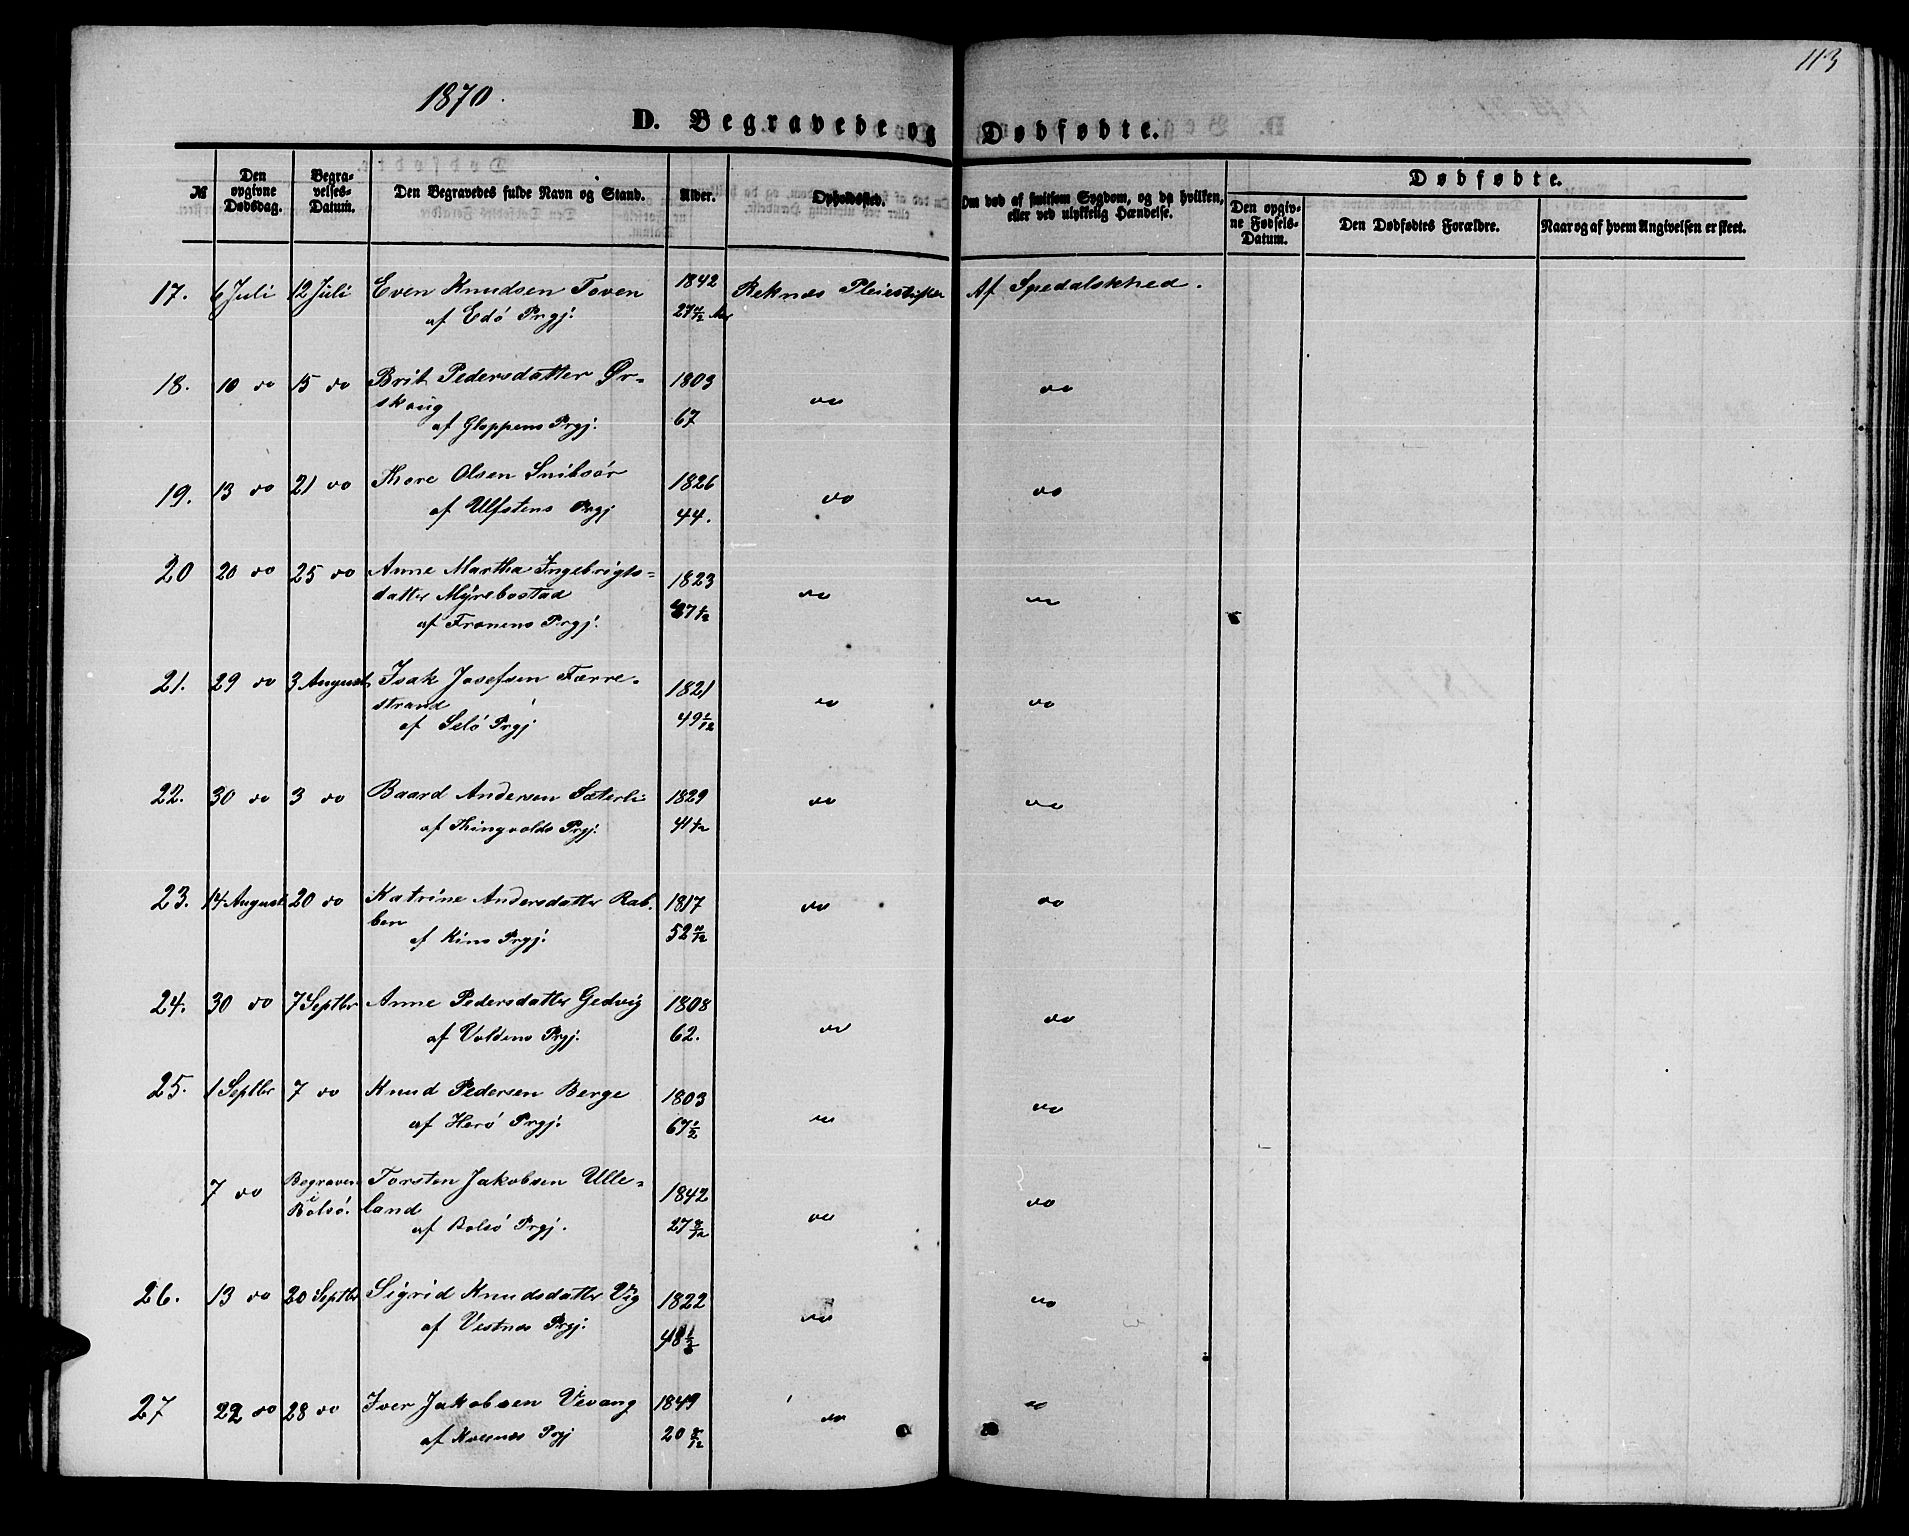 113
1870.
D. Begravede og Dødfødte.
№
Den opgivne Dødsdag.
Begravelses-Datum.
Den Begravedes fulde Navn og Stand.
Alder.
Opholdssted.
Om død af smitsom Sygdom, og da hvilken, eller ved ulykkelig Hændelse.
Dødfødte.
Den opgivne Fødsels-Datum.
Den Dødfødtes Forældre.
Naar og af hvem Angivelsen er skeet.
17. 6 Juli 12 Juli Even Knudsen Toven 1842 Reknæs Pleiestiftelse Af Spedalskhed.
af Edø Prgj. 27 Aar
18. 10 do 15 do Brit Pedersdatter Ør- 1803 do do
skoug
af Gloppens Prgj. 67
19. 13 do 21 do Thore Olsen Snibsør 1826 do do
af Ulfstens Prgj 44.
20 20 do 25 do Anne Martha Ingebrigts- 1823 do do
datter Myrebostad
af Frænens Prgj. 47 1/2
21. 29 do 3 August Isak Josefsen Færre- 1821 do do
strand
af Selø Prgj 49 1/12
22. 30 do 3 do Baard Andersen Sæterli 1829 do do
af Thingvolds Prgj. 41 1/2
23. 14 August 20 do Katrine Andersdatter Rab- 1817 do do
ben
af Kins Prgj. 52 11/12
24. 30 do 7 Septbr Anne Pedersdatter Gedvig 1808 do do
af Voldens Prgj. 62.
25. 1 Septbr 7 do Knud Pedersen Berge 1803 do do
af Herø Prgj. 67 1/2
7 do Begraven i Bolsø. Torsten Jakobsen Ulle- 1842 do do
land
af Bolsø Prgj. 27 8/12
26. 13 do 20 Septbr Sigrid Knudsdatter Vig 1822 do do
af Vestnes Prgj. 48 1/2
27 22 do 28 do Iver Jakobsen Vevang 1849 do do
af Kvernæs Prgj 20 8/12